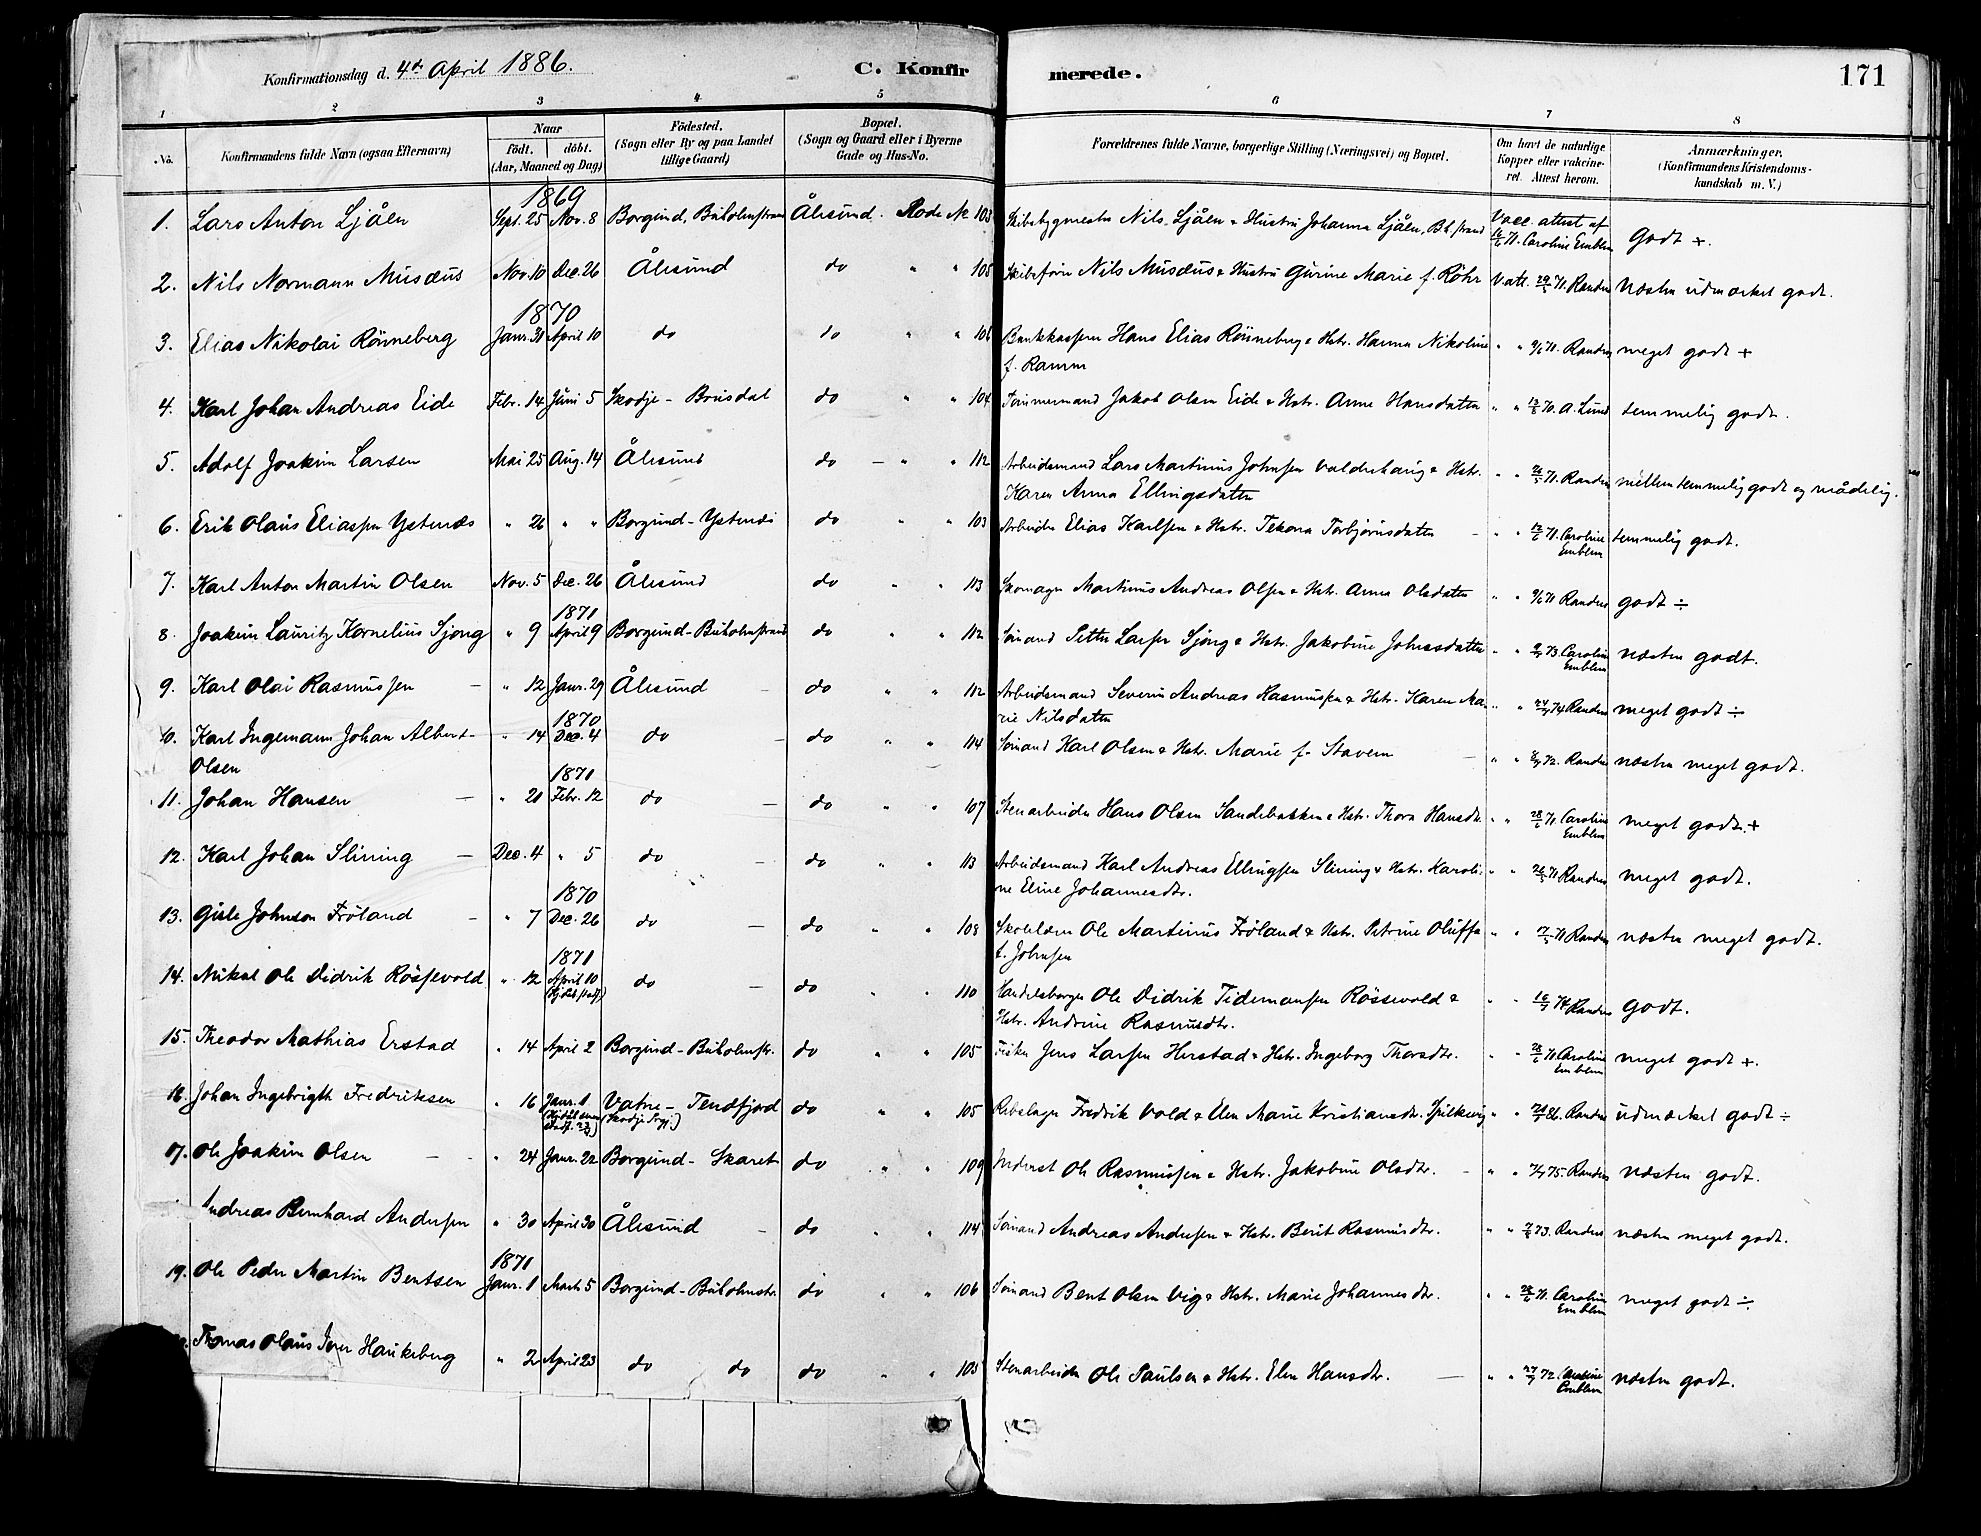 Konfirmationsdag d. 4de April 1886. C. Konfirmerede. 171
1 2 3 4 5 6 7 8
No. Konfirmandens fulde Navn (ogsaa Efternavn) Naar födt. döbt. (Aar, Maaned og Dag) Födested. (Sogn eller By og paa Landet tillige Gaard) Bopæl. (Sogn og Gaard eller i Byerne Gade og Hus-No. Forældrenes fulde Navne, borgerlige Stilling (Næringsvei) og Bopæl. Om havt de naturlige Kopper eller vakcineret. Attest herom. Anmærkninger. (Konfirmandens Kristendomskundskab m. V.)
1869
1. Lars Anton Ljåen Sept. 25 Nov. 8 Borgund, Buholmstrand Ålesund. Rode No 103 Skibsbygmester Nils Ljåen & Hustru Johanna Ljåen, Bh.strand Vacc. attest af 71. Caroline Emblem Godt +.
2. Nils Normann Musæus Nov. 10 Dec. 26 Ålesund do " " 105 Skibsfører Nils Musæus & Hustru Gurine Marie f. Röhr V. att. 29/ 71. Randers Næsten udmærket godt.
1870
3. Elias Nikolai Rönneberg Janr. 31 April 10 do do " " 106 Bankkasserer Hans Elias Rönneberg & Hstr. Hanna Nikoline f. Ramm " " 9/6 71. Randers meget godt +
4. Karl Johan Andreas Eide Febr. 14 Juni 5 Skodje - Brusdal do " " 104 Tömmermand Jakob Olsen Eide & Hstr. Anne Hansdatter " " 70. A. Lund temmelig godt.
5. Adolf Joakim Larsen Mai 25 Aug. 14 Ålesund do - " " 112 Arbeidsmand Lars Martinus Johnsen Valderhaug & Hstr. Karen Anna Ellingsdatter " " 71. Randers mellem temmelig godt og mådelig.
6. Erik Olaus Eliassen Ystenæs " 26 " " Borgund - Ystenæs do " " 103 Arbeider Elias Karlsen & Hstr. Tekora Torbjörnsdatter - " " 71. Caroline Emblem temmelig godt.
7. Karl Anton Martin Olsen Nov. 5 Dec. 26 Ålesund do " " 113 Skomager Martinus Andreas Olsen & Hstr. Anna Olsdatter " " 9/6 71 Randers godt ÷
1871
8. Joakim Lauritz Kornelius Sjong " 9 April 9 Borgund - Buholmstrand do " " 112 Sömand Petter Larsen Sjong & Hstr. Jakobine Johnsdatter " " 73. Caroline Emblem næsten godt.
9. Karl Olai Rasmussen - " 12 Janr. 29 Ålesund - do " " 112 Arbeidsmand Severin Andreas Rasmussen & Hstr. Karen Marie Nilsdatter " " 74 Randers meget godt ÷
1870
10. Karl Ingemann Johan Albert Olsen " 14 Dec. 4 do - do " " 114 Sömand Karl Olsen & Hstr. Marie f. Stavem - " " 72. Randers næsten meget godt.
1871
11. Johan Hansen - " 21 Febr. 12 do - do " " 107 Stenarbeider Hans Olsen Sandebakken & Hstr. Thora Hansdtr. " " 28/6 71. Caroline Emblem meget godt +
12. Karl Johan Slining - Dec. 4 " 5 do - do " " 113 Arbeidsmand Karl Andreas Ellingsen Slining & Hstr. Karoline Eline Johannesdtr. " " 71 Randers meget godt.
1870
13. Gisle Johnson Fröland - " 7 Dec. 26 do - do " " 108 Skolelærer Ole Martinus Fröland & Hstr. Petrine Oluffa f. Johnsen " " 71 Randers næsten meget godt.
1871
14. Mikal Ole Didrik Rössevold " 12 April 10 (Hjdbt. stadf.) do - do " " 110 Handelsborger Ole Didrik Tidemansen Rössevold & Hstr. Andrine Rasmusdtr. " " 74 Randers godt.
15. Theodor Mathias Erstad " 14 April 2 Borgund - Buholmstr. do " " 105 Fisker Jens Larsen Herstad & Hstr. Ingeborg Thorsdtr. " " 28/6 71 Caroline Emblem meget godt +.
16. Johan Ingebrigth Fredriksen " 16 Janr. 1 Vatne - Tenfjord (Skodje Prgj.) do " " 105 Rebslager Fredrik Vold & Elen Marie Kristiansdtr. Spilkevig " " 86. Randers udmærket godt ÷
17. Ole Joakim Olsen - - " 24 Janr. 22 Borgund - Skaret do " " 109 Inderst Ole Rasmussen & Hstr. Jakobine Olsdtr. - " " 75. Randers næsten godt.
Andreas Bernhard Andersen " 30 April 30 Ålesund - do " " 114 Sömand Andreas Andersen & Hstr. Berit Rasmusdtr. " " 73. Randers næsten meget godt.
1871
19. Ole Peder Martin Bentsen Janr. 1 Marts 5 Borgund - Buholmstr. do " " 106 Sömand Bent Olsen Vig & Hstr. Marie Johannesdtr. " " 28/6 71. Caroline Emblem meget godt ÷.
Thomas Olaus Iver Haukeberg " 2 April 23 do do do " " 105 Stenarbeider Ole Paulsen & Hstr. Elen Hansdtr. - " " 72 Caroline Emblem næsten godt.